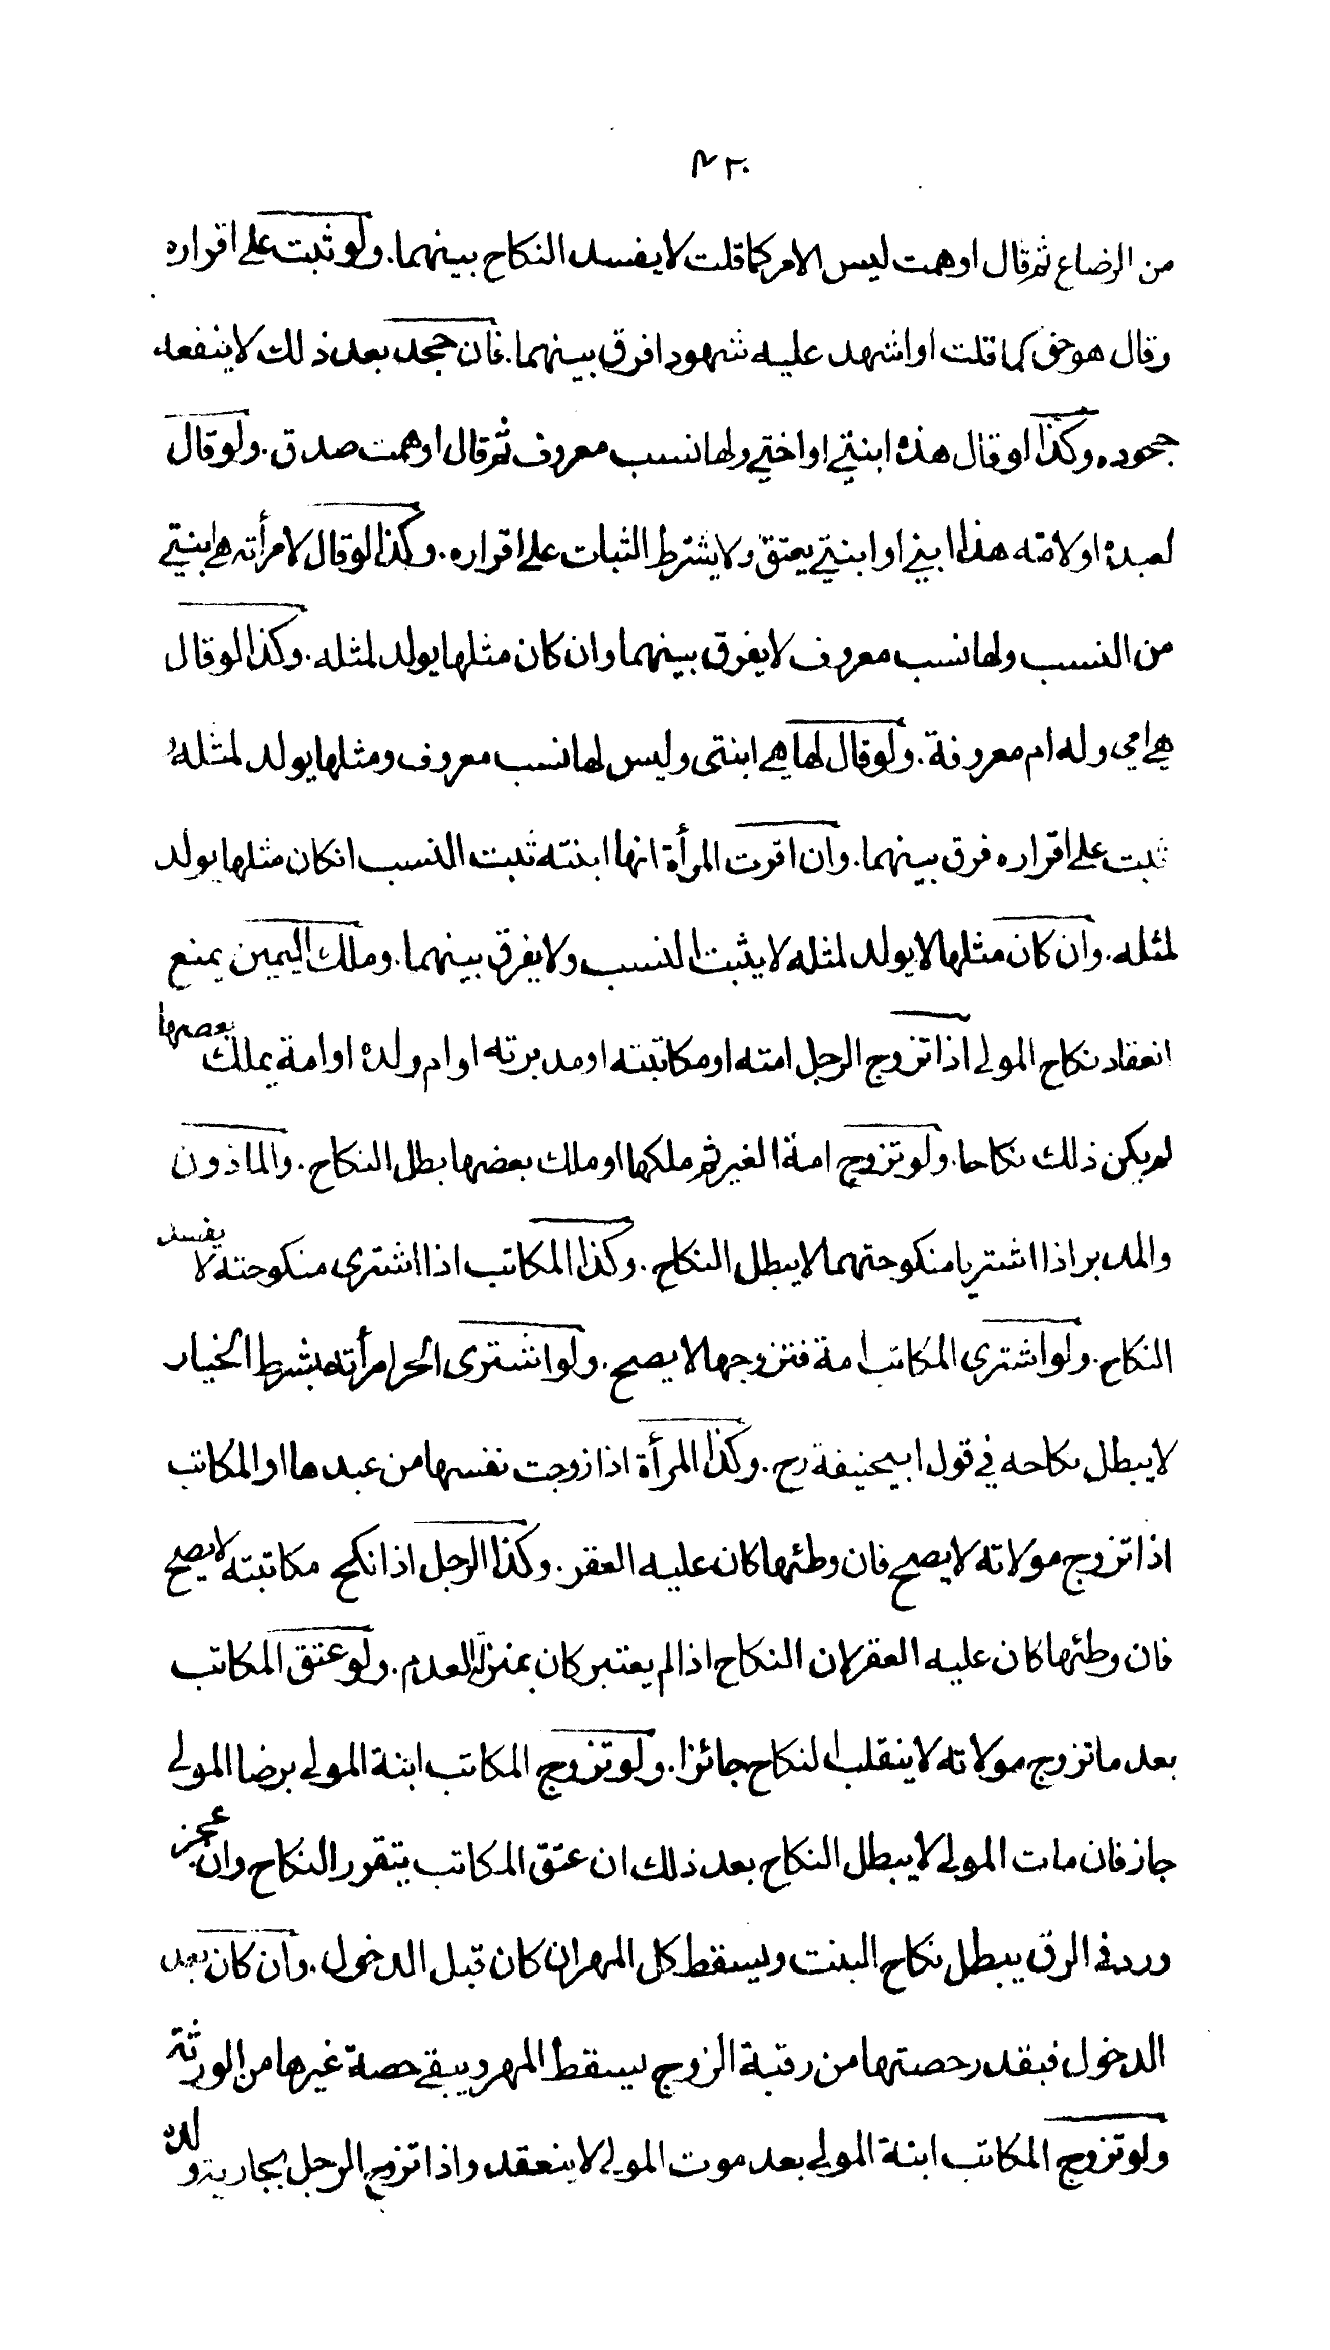 ٤٢٠
من الرضاع ثم قال اوهمت ليس الامر كما قلت لا يفسد النكاح بينهما. ولو ثبت على اقراره
وقال هو حق كما قلت او اشهد عليه شهودا فرق بينهما. فان جحد بعد ذلك لا ينفعه
جحوده. وكذا لو قال هذه ابنتي او اختي ولها نسب معروف ثم قال اوهمت صدق. ولو قال
لعبده او لامته هذا ابني او ابنتي يعتق ولا يشترط الثبات على اقراره. وكذا لو قال لامرأته هي ابنتي
من النسب ولها نسب معروف لا يفرق بينهما وان كان مثلها يولد لمثله. وكذا لو قال
هي امي وله ام معروفة. ولو قال لها هي ابنتى وليس لها نسب معروف ومثلها يولد لمثله
ثبت على اقراره فرق بينهما. وان اقرت المرأة انها ابنته ثبت النسب انكان مثلها يولد
لمثله. وان كان مثلها لا يولد لمثله لا يثبت النسب ولا يفرق بينهما. وملك اليمين يمنع
انعقاد نكاح المولى اذا تزوج الرجل امته او مكاتبته او مدبرته او ام ولده او امة يملك بعضها
لم يكن ذلك نكاحا. ولو تزوج امة الغير ثم ملكها او ملك بعضها بطل النكاح. والماذون
والمدبر اذا اشتريا منكوحتهما لا يبطل النكاح. وكذا المكاتب اذا اشترى منكوحته لا يفسد
النكاح. ولو اشترى المكاتب امة فتزوجها لا يصح. ولو اشترى الحر امرأته بشرط الخيار
لا يبطل نكاحه في قول ابيحنيفة رح. وكذا المرأة اذا زوجت نفسها من عبدها او المكاتب
اذا تزوج مولاته لا يصح فان وطئها كان عليه العقر. وكذا الرجل اذا نكح مكاتبته لا يصح
فان وطئها كان عليه العقر لان النكاح اذا لم يعتبر كان بمنزلة العدم. ولو عتق المكاتب
بعد ما تزوج مولاته لا ينقلب النكاح جائزا. ولو تزوج المكاتب ابنة المولى برضا المولى
جاز فان مات المولى لا يبطل النكاح بعد ذلك ان عتق المكاتب يتقرر النكاح وان عجز
ورد في الرق يبطل نكاح البنت ويسقط كل المهر ان كان قبل الدخول. وان كان بعد
الدخول فبقدر حصتها من رقبة الزوج يسقط المهر ويبقى حصة غيرها من الورثة
ولو تزوج المكاتب ابنة المولى بعد موت المولى لا ينعقد واذا تزوج الرجل بجارية ولده